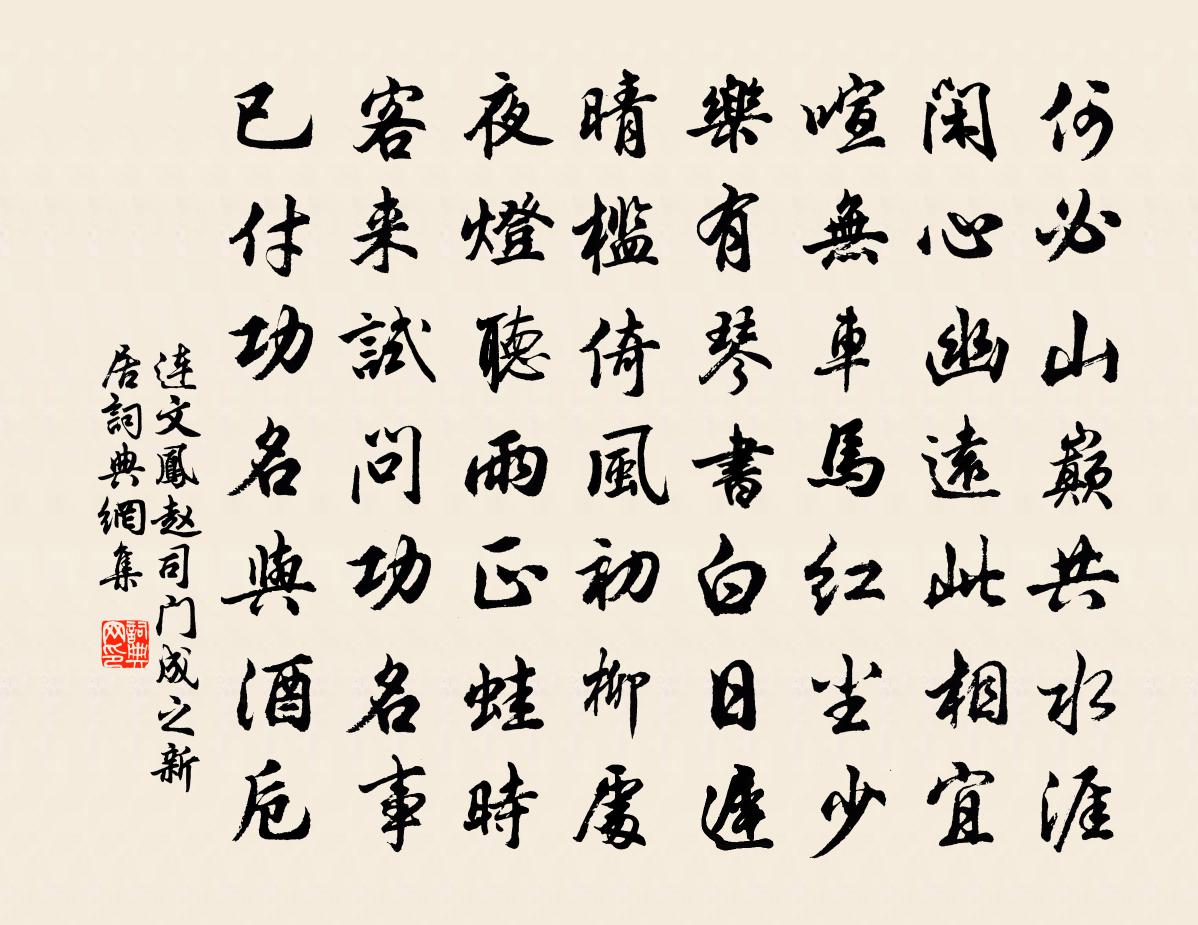 何必山巔共水涯
閑心幽遠此相宜
喧無車馬红尘少
樂有琴書白日遲
晴檻倚風初柳處
夜燈聽雨正蛙時
客来試問功名事
已付功名與酒卮
连文鳳赵司门成之新
居詞典網集
詞典网印